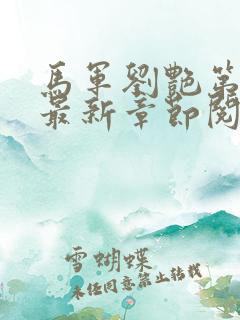 馬軍劉艷第
最新章節閱
雪蝴蝶
未經同意禁止轉載